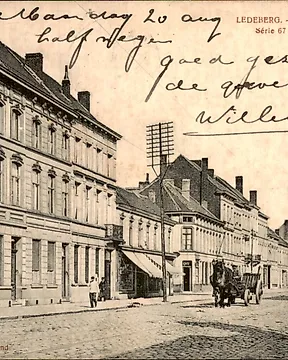 Maandag 20 aug
LEDEBERG. -
Série 67
half negen
goed ges
de g
Wille
nd